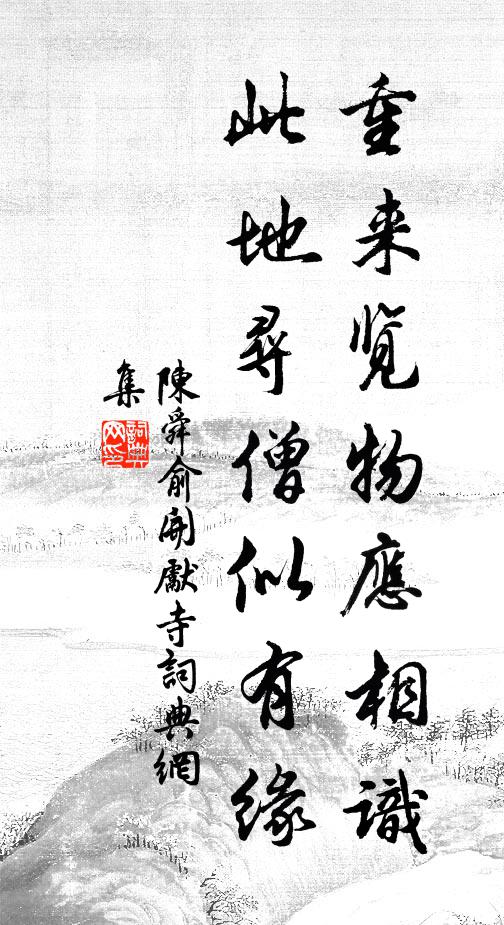 重来览物應相識
此地尋僧似有緣
陳舜俞開獻寺詞典網
集